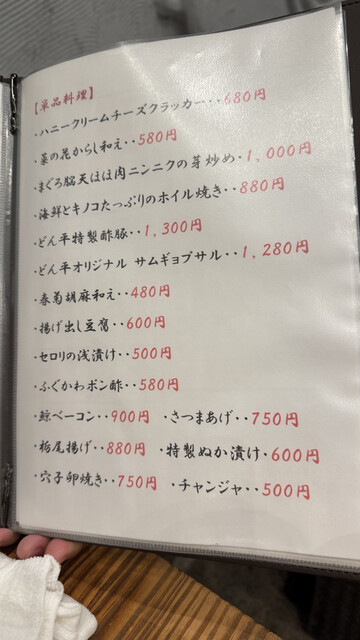 【単品料理】
・ハニークリームチーズクラッカー・・680円
・菜の花からし和え・・580円
・まぐろ脳天ほほ肉ニンニクの芽炒め・1,000円
・海鮮とキノコたっぷりのホイル焼き・・880円
・どん平特製酢豚・・1,300円
・どん平オリジナル サムギョプサル・・1,280円
・春菊胡麻和え・・480円
・揚げ出し豆腐・・600円
・セロリの浅漬け・・500円
・ふぐかわポン酢・・580円
・鯨ベーコン・・900円 ・さつまあげ・・750円
・栃尾揚げ・・880円 ・特製ぬか漬け・600円
・穴子卵焼き・・750円 ・チャンジャ・・500円